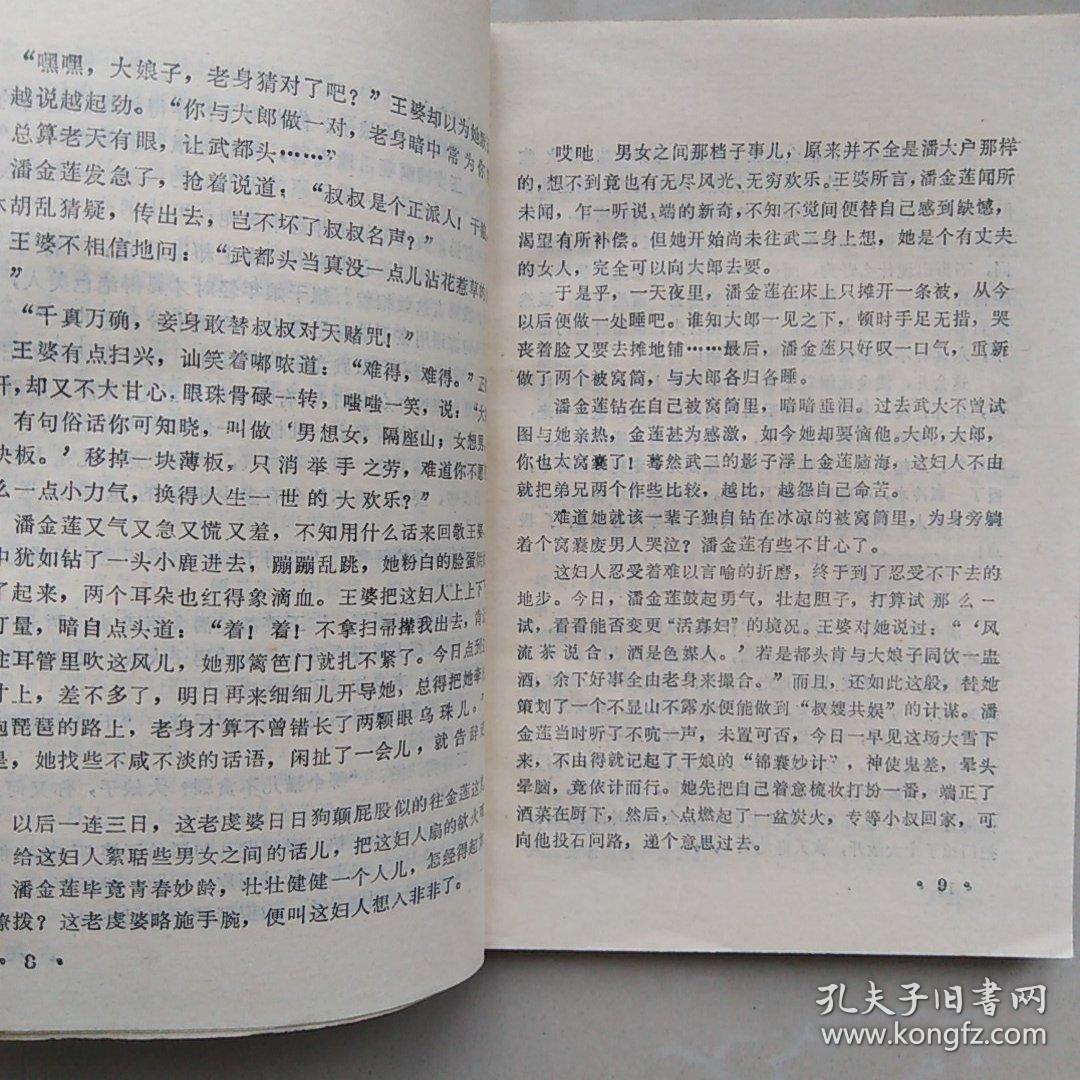 “嘿嘿，大娘子，老身猜对了吧？”王婆却以为她
越说越起劲。“你与大郎做一对，老身暗中常为你
总算老天有眼，让武都头……”
潘金莲发急了，抢着说道：“叔叔是个正派人！干娘
胡乱猜疑，传出去，岂不坏了叔叔名声？”
王婆不相信地问：“武都头当真没一点儿沾花惹草的
”
“千真万确，妾身敢替叔叔对天赌咒！”
王婆有点扫兴，讪笑着嘟哝道：“难得，难得。”
开，却又不大甘心，眼珠骨碌一转，嗤嗤一笑，说：“大
有句俗话你可知晓，叫做‘男想女，隔座山；女想男
块板。’移掉一块薄板，只消举手之劳，难道你不愿
么一点小力气，换得人生一世的大欢乐？”
潘金莲又气又急又慌又羞，不知用什么话来回敬王婆
中犹如钻了一头小鹿进去，蹦蹦乱跳，她粉白的脸蛋
了起来，两个耳朵也红得象滴血。王婆把这妇人上上下
打量，暗自点头道：“着！着！不拿扫帚撵我出去，肯
往耳管里吹这风儿，她那篱笆门就扎不紧了。今日点到
才上，差不多了，明日再来细细儿开导她，总得把她牵
抱琵琶的路上，老身才算不曾错长了两颗眼乌珠儿。”
是，她找些不咸不淡的话语，闲扯了一会儿，就告辞
以后一连三日，这老虔婆日日狗颠屁股似的往金莲这
给这妇人絮聒些男女之间的话儿，把这妇人扇的欲火
潘金莲毕竟青春妙龄，壮壮健健一个人儿，怎经得起
撩拨？这老虔婆略施手腕，便叫这妇人想入非非了。
· 8 ·
哎吔　男女之间那档子事儿，原来并不全是潘大户那样
的，想不到竟也有无尽风光、无穷欢乐。王婆所言，潘金莲闻所
未闻，乍一听说、端的新奇，不知不觉间便替自己感到缺憾，
渴望有所补偿。但她开始尚未往武二身上想，她是个有丈夫
的女人，完全可以向大郎去要。
于是乎，一天夜里，潘金莲在床上只摊开一条被，从今
以后便做一处睡吧。谁知大郎一见之下，顿时手足无措，哭
丧着脸又要去摊地铺……最后，潘金莲只好叹一口气，重新
做了两个被窝筒，与大郎各归各睡。
潘金莲钻在自己被窝筒里，暗暗垂泪。过去武大不曾试
图与她亲热，金莲甚为感激，如今她却要恼他。大郎，大郎，
你也太窝囊了！蓦然武二的影子浮上金莲脑海，这妇人不由
就把弟兄两个作些比较，越比，越怨自己命苦。
难道她就该一辈子独自钻在冰凉的被窝筒里，为身旁躺
着个窝囊废男人哭泣？潘金莲有些不甘心了。
这妇人忍受着难以言喻的折磨，终于到了忍受不下去的
地步。今日，潘金莲鼓起勇气，壮起胆子，打算试那么一
试，看看能否变更“活寡妇”的境况。王婆对她说过：“‘风
流茶说合，酒是色媒人。’若是都头肯与大娘子同饮一盅
酒，余下好事全由老身来撮合。”而且，还如此这般，替她
策划了一个不显山不露水便能做到“叔嫂共娱”的计谋。潘
金莲当时听了不吭一声，未置可否，今日一早见这场大雪下
来，不由得就记起了干娘的“锦囊妙计”，神使鬼差，晕头
晕脑，竟依计而行。她先把自己着意梳妆打扮一番，端正了
酒菜在厨下，然后，点燃起了一盆炭火，专等小叔回家，可
向他投石问路，递个意思过去。
· 9 ·
孔夫子旧书网
www.kongfz.com